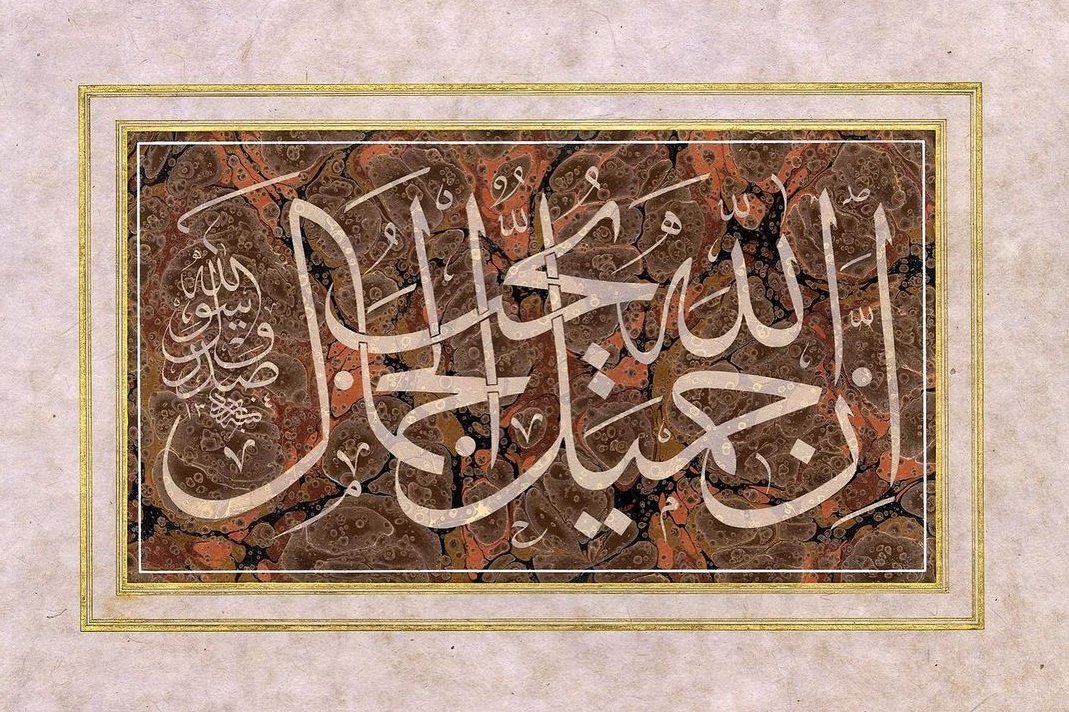 إن الله جميل يحب الجمال
صدق رسول الله